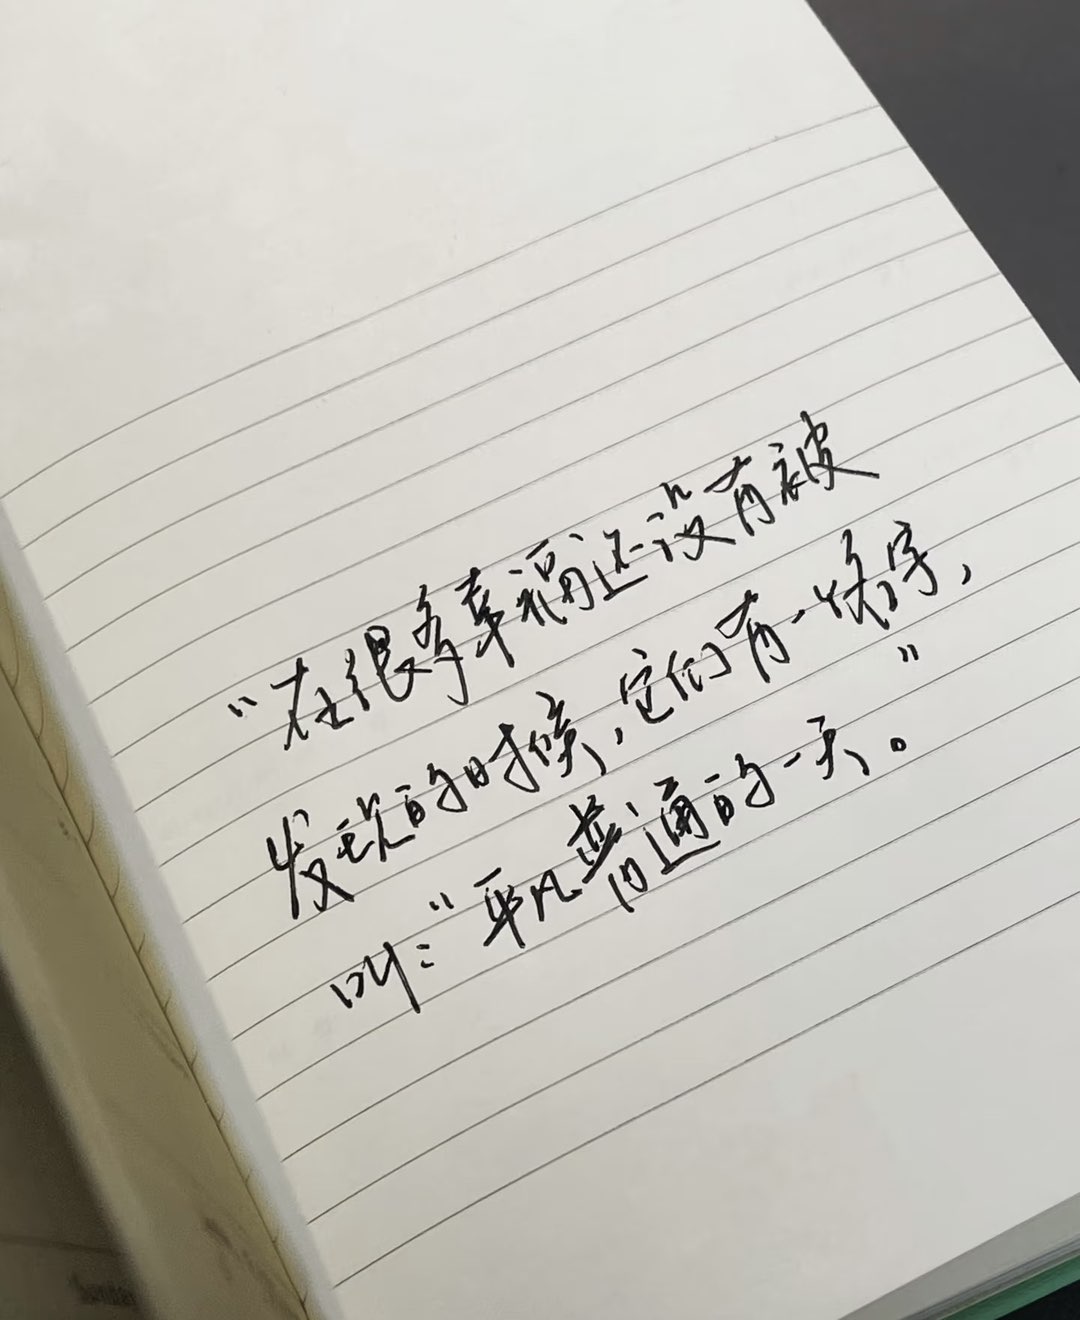 “在很多幸福还没有被
发现的时候，它们有一个名字，
叫：“平凡普通的一天。”